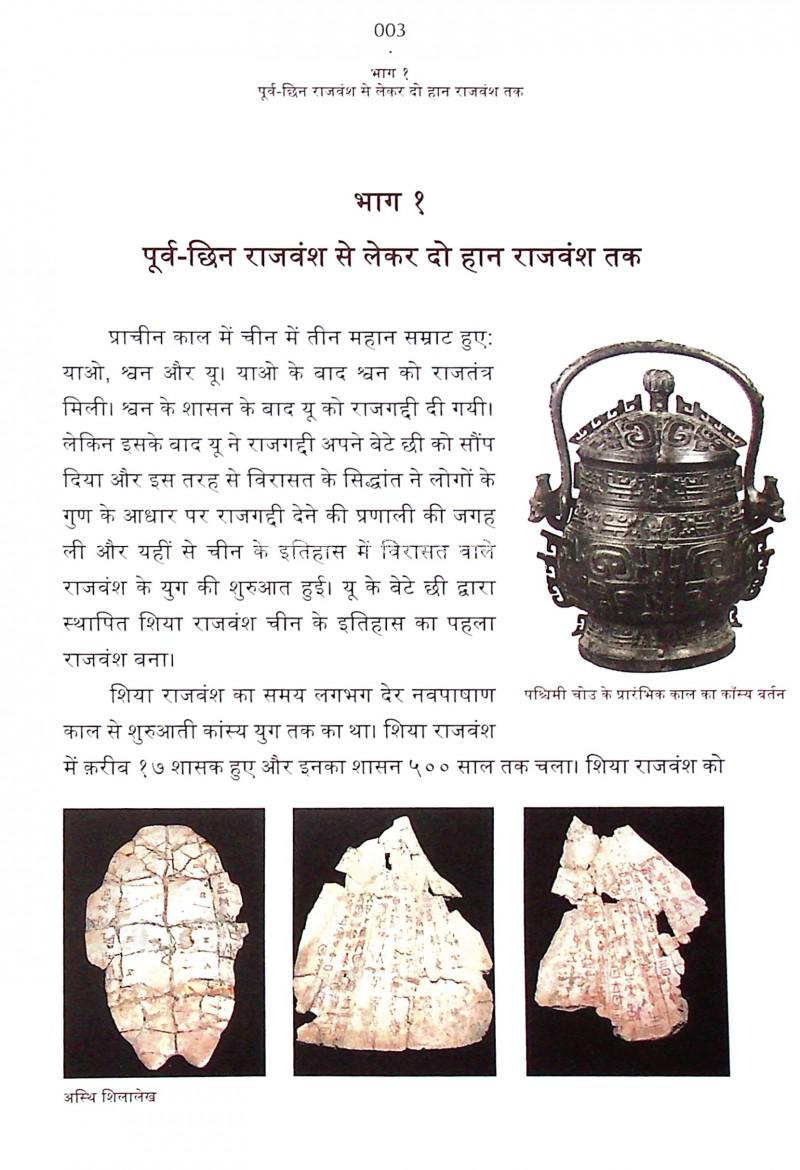 003
भाग १
पूर्व-छिन राजवंश से लेकर दो हान राजवंश तक
भाग १
पूर्व-छिन राजवंश से लेकर दो हान राजवंश तक
प्राचीन काल में चीन में तीन महान सम्राट हुए:
याओ, श्वन और यू। याओ के बाद श्वन को राजतंत्र
मिली। श्वन के शासन के बाद यू को राजगद्दी दी गयी।
लेकिन इसके बाद यू ने राजगद्दी अपने बेटे छी को सौंप
दिया और इस तरह से विरासत के सिद्धांत ने लोगों के
गुण के आधार पर राजगद्दी देने की प्रणाली की जगह
ली और यहीं से चीन के इतिहास में विरासत वाले
राजवंश के युग की शुरुआत हुई। यू के बेटे छी द्वारा
स्थापित शिया राजवंश चीन के इतिहास का पहला
राजवंश बना।
शिया राजवंश का समय लगभग देर नवपाषाण
काल से शुरुआती कांस्य युग तक का था। शिया राजवंश
में क़रीब १७ शासक हुए और इनका शासन ५०० साल तक चला। शिया राजवंश को
पश्चिमी चोउ के प्रारंभिक काल का काँस्य बर्तन
अस्थि शिलालेख